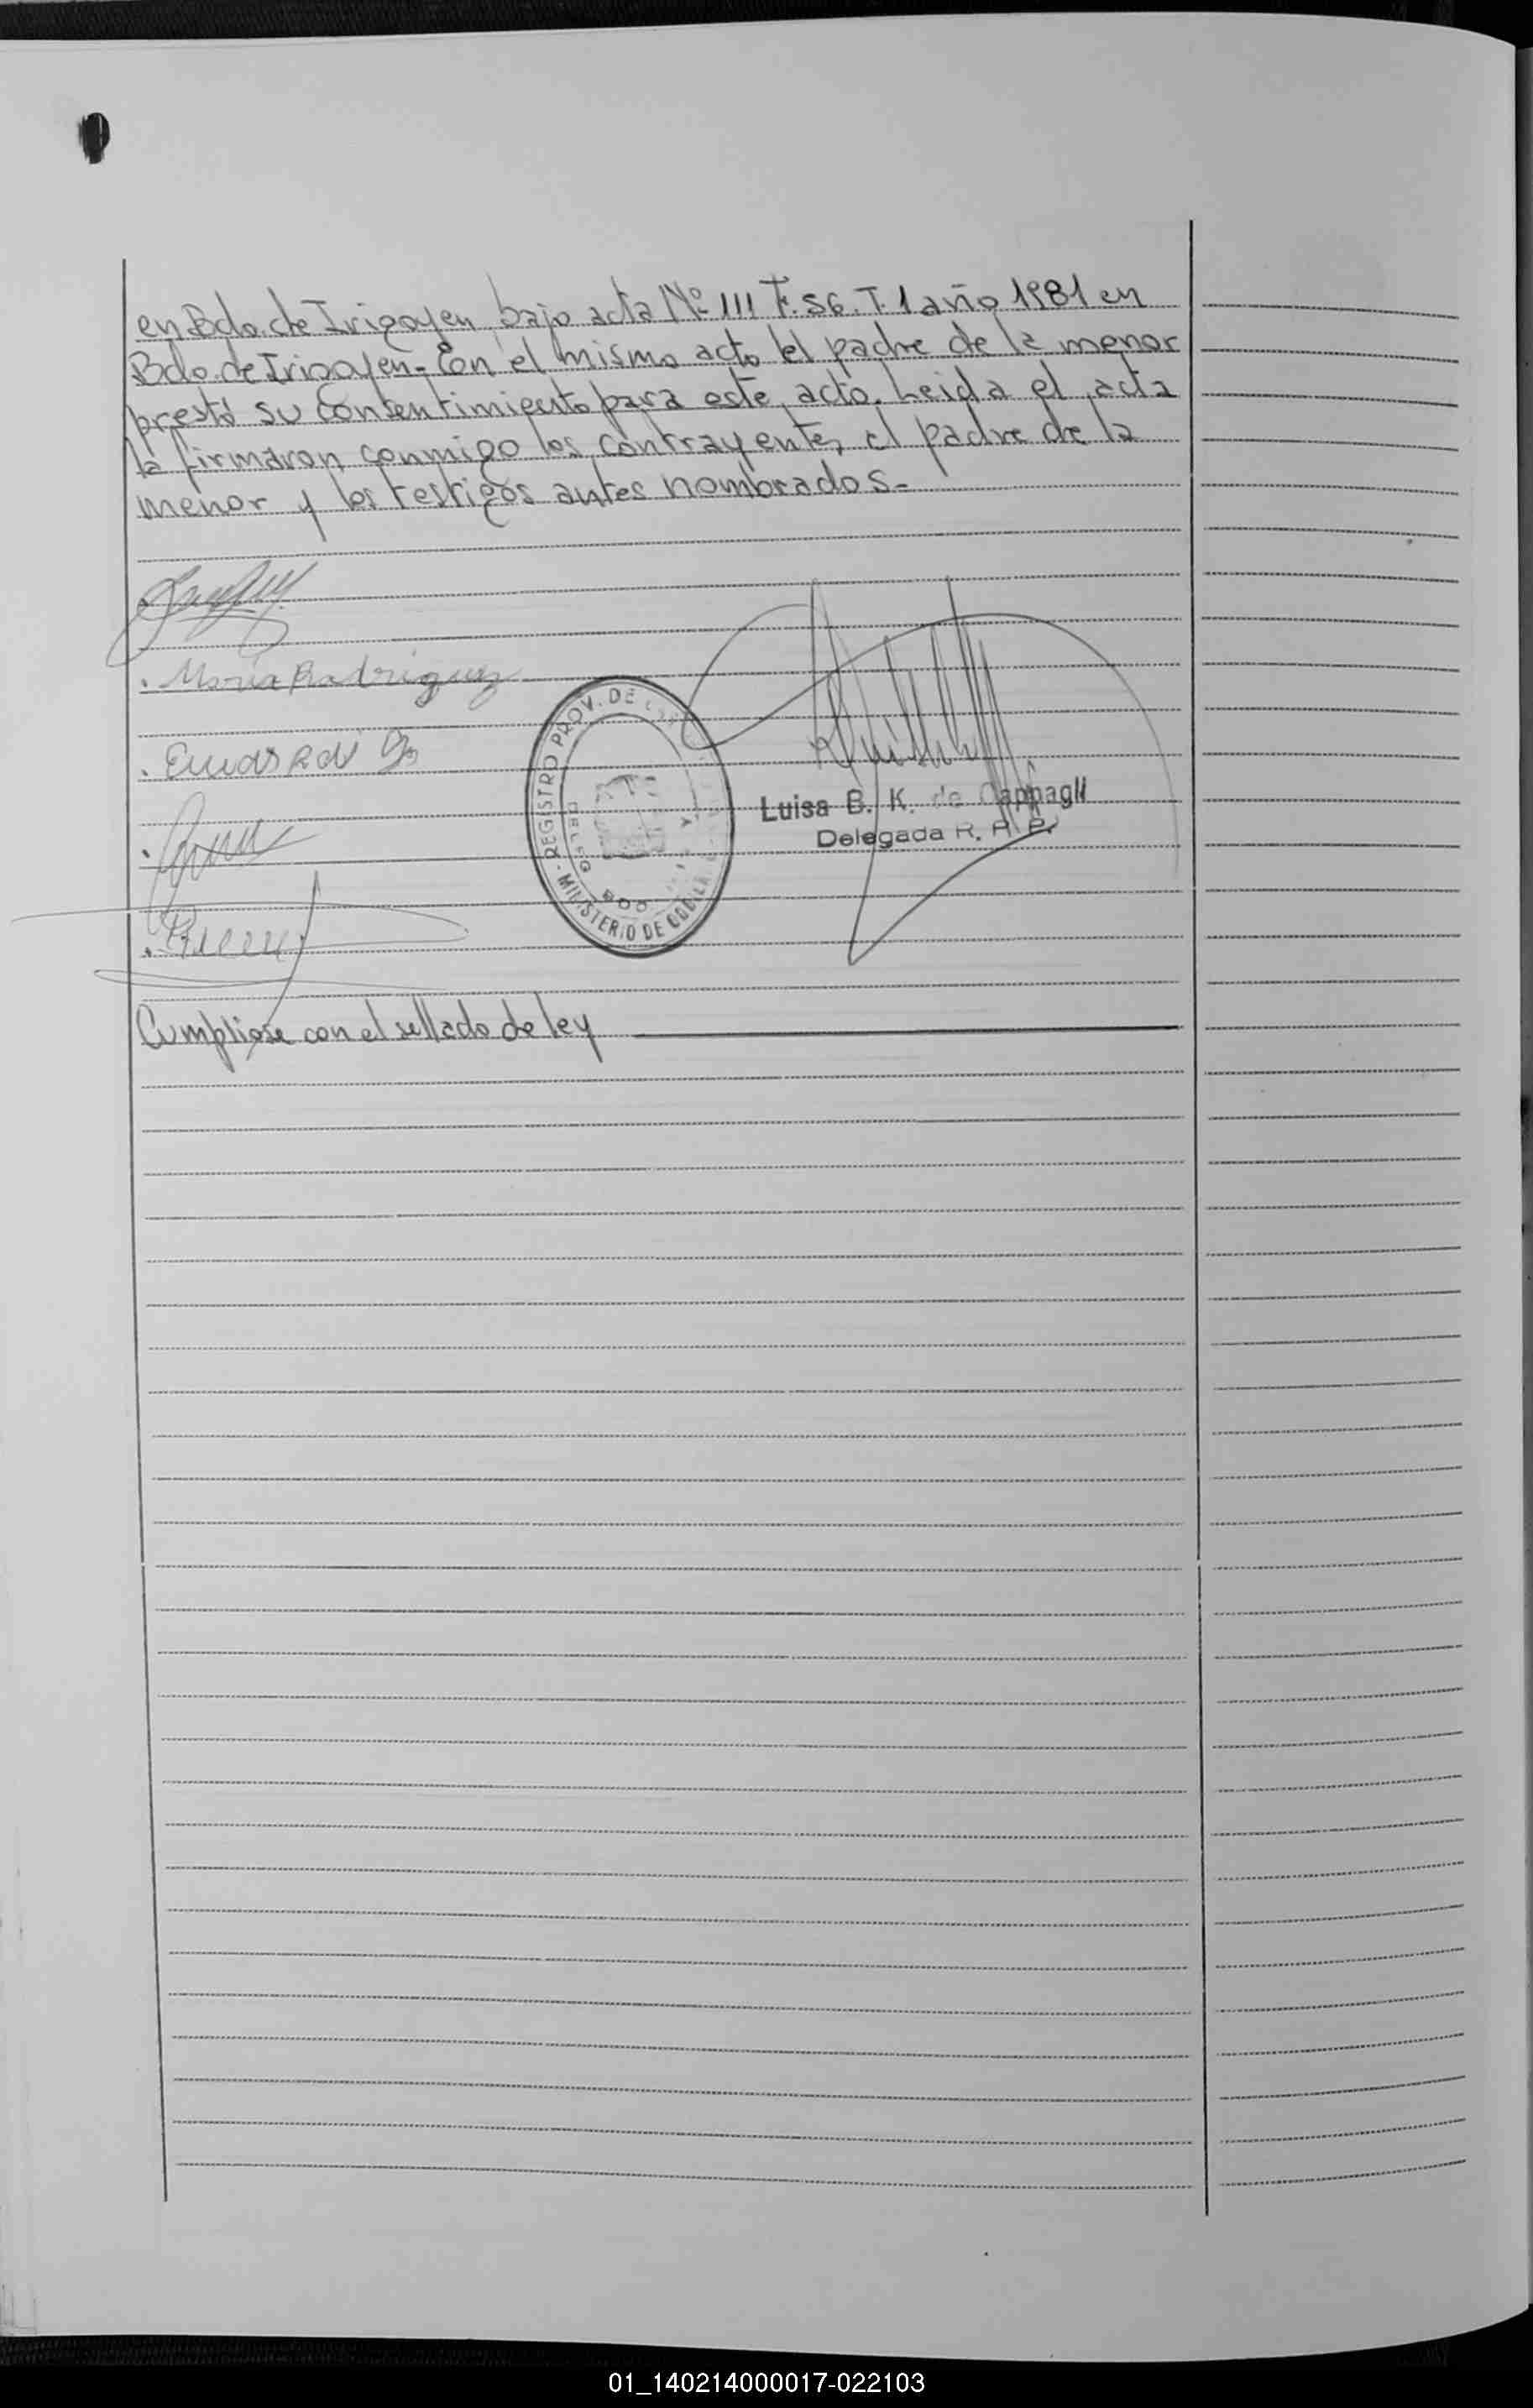 en Bdo. de Irigoyen, bajo acta Nº 111 F. 56. T. 1 año 1981 en
Bdo. de Irigoyen.- En el mismo acto el padre de la menor
prestó su consentimiento para este acto. Leida el acta
la firmaron conmigo los contrayentes, el padre de la
menor y los testigos antes nombrados.-
. Maria Rodriguez
REGISTRO PROV. DE
MINISTERIO DE
Luisa B. K. de Cappagli
Delegada R. P.
Cumpliose con el sellado de ley
01_140214000017-022103